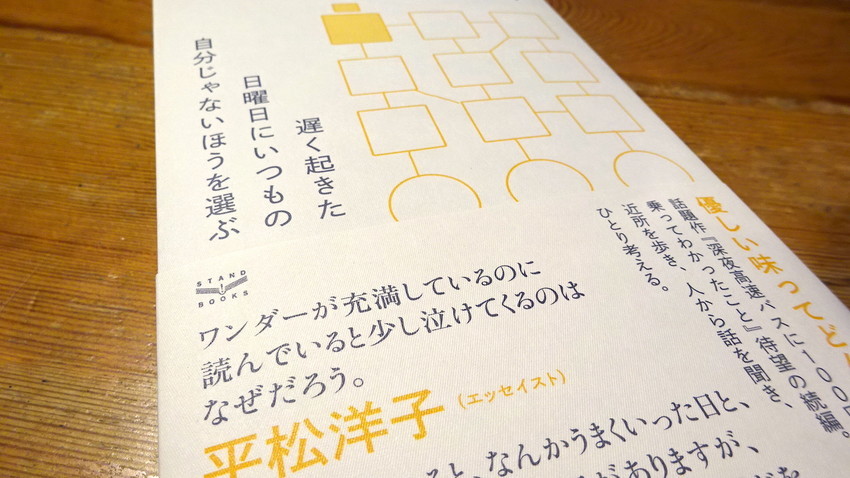 遅く起きた
日曜日にいつもの
自分じゃないほうを選ぶ
優しい味ってど
話題作『深夜高速バスに100
乗ってわかったこと』待望の続編。
近所を歩き、人から話を聞き、
ひとり考える。
STAND
!
BOOKS
ワンダーが充満しているのに
読んでいると少し泣けてくるのは
なぜだろう。
平松洋子（エッセイスト）
と、なんかうまくいった日と、
がありますが、